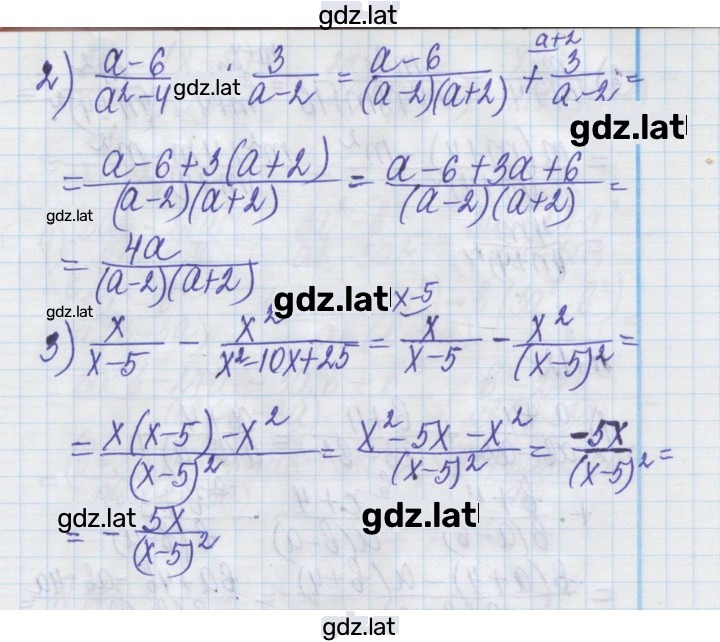 gdz.lat
2) (a-6)/(a²-4) · 3/(a-2) = (a-6)/((a-2)(a+2)) + 3/(a-2) a+2 =
gdz.lat
gdz.lat
= (a-6+3(a+2))/((a-2)(a+2)) = (a-6+3a+6)/((a-2)(a+2)) =
gdz.lat
= 4a/((a-2)(a+2))
gdz.lat
3) x/(x-5) - x²/(x²-10x+25) = x/(x-5) x-5 - x²/(x-5)² =
= (x(x-5)-x²)/(x-5)² = (x²-5x-x²)/(x-5)² = -5x/(x-5)² =
gdz.lat
gdz.lat
= - 5x/(x-5)²
gdz.lat